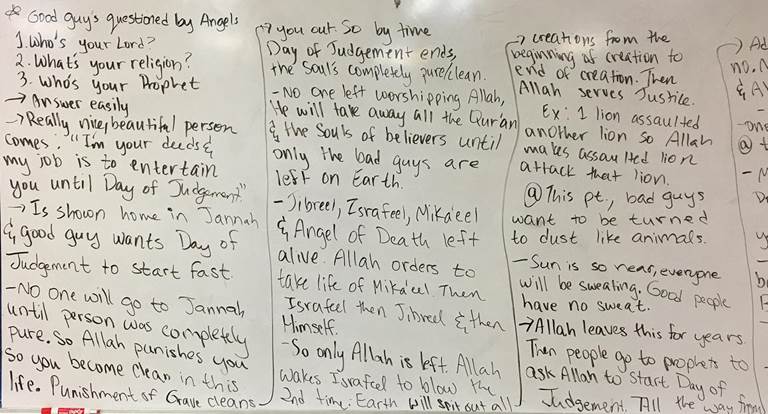 * Good guy's questioned by Angels
1. Who's your Lord?
2. What's your religion?
3. Who's your Prophet
→ Answer easily
→ Really nice, beautiful person
comes. "I'm your deeds &
my job is to entertain
you until Day of Judgement"
→ Is shown home in Jannah
& good guy wants Day of
Judgement to start fast.
- No one will go to Jannah
until person was completely
pure. So Allah punishes you
so you become clean in this
life. Punishment of Grave cleans
→ you out. So by time
Day of Judgement ends,
the soul's completely pure/clean.
- No one left worshipping Allah,
He will take away all the Qur'an
& the souls of believers until
only the bad guys are
left on Earth.
- Jibreel, Israfeel, Mika'eel
& Angel of Death left
alive. Allah orders to
take life of Mika'eel. Then
Israfeel then Jibreel & then
Himself.
- So only Allah is left. Allah
wakes Israfeel to blow the
2nd time. Earth will spit out all
→ creations from the
beginning of creation to
end of creation. Then
Allah serves Justice.
Ex: 1 lion assaulted
another lion so Allah
makes assaulted lion
attack that lion.
@ This pt., bad guys
want to be turned
to dust like animals.
- Sun is so near, everyone
will be sweating. Good people
have no sweat.
→ Allah leaves this for years.
Then people go to prophets to
ask Allah to start Day of
Judgement. All the way from
→ Ad
no. N